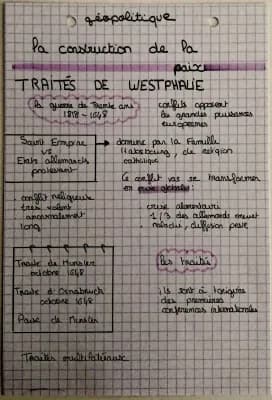 géopolitique
la construction de la
paix
TRAITÉS DE WESTPHALIE
la guerre de Trente ans
1618 - 1648
conflits opposant
les grandes puissances
européennes
Saint Empire
vs
Etats allemands
protestant
dominé par la Famille
Habsbourg, de religion
catholique
Ce conflit va se transformer
en crise globale :
. conflit religieux
très violent
anormalement
long
. crise alimentaire
. 1/3 des allemands meurt
. maladie, diffusion peste
Traité de Munster
octobre 1648
Traité d'Osnabruck
octobre 1648
Paix de Munster
les traités
. ils sont à l'origine
des premières
conférences internationales
Traités multilatéraux